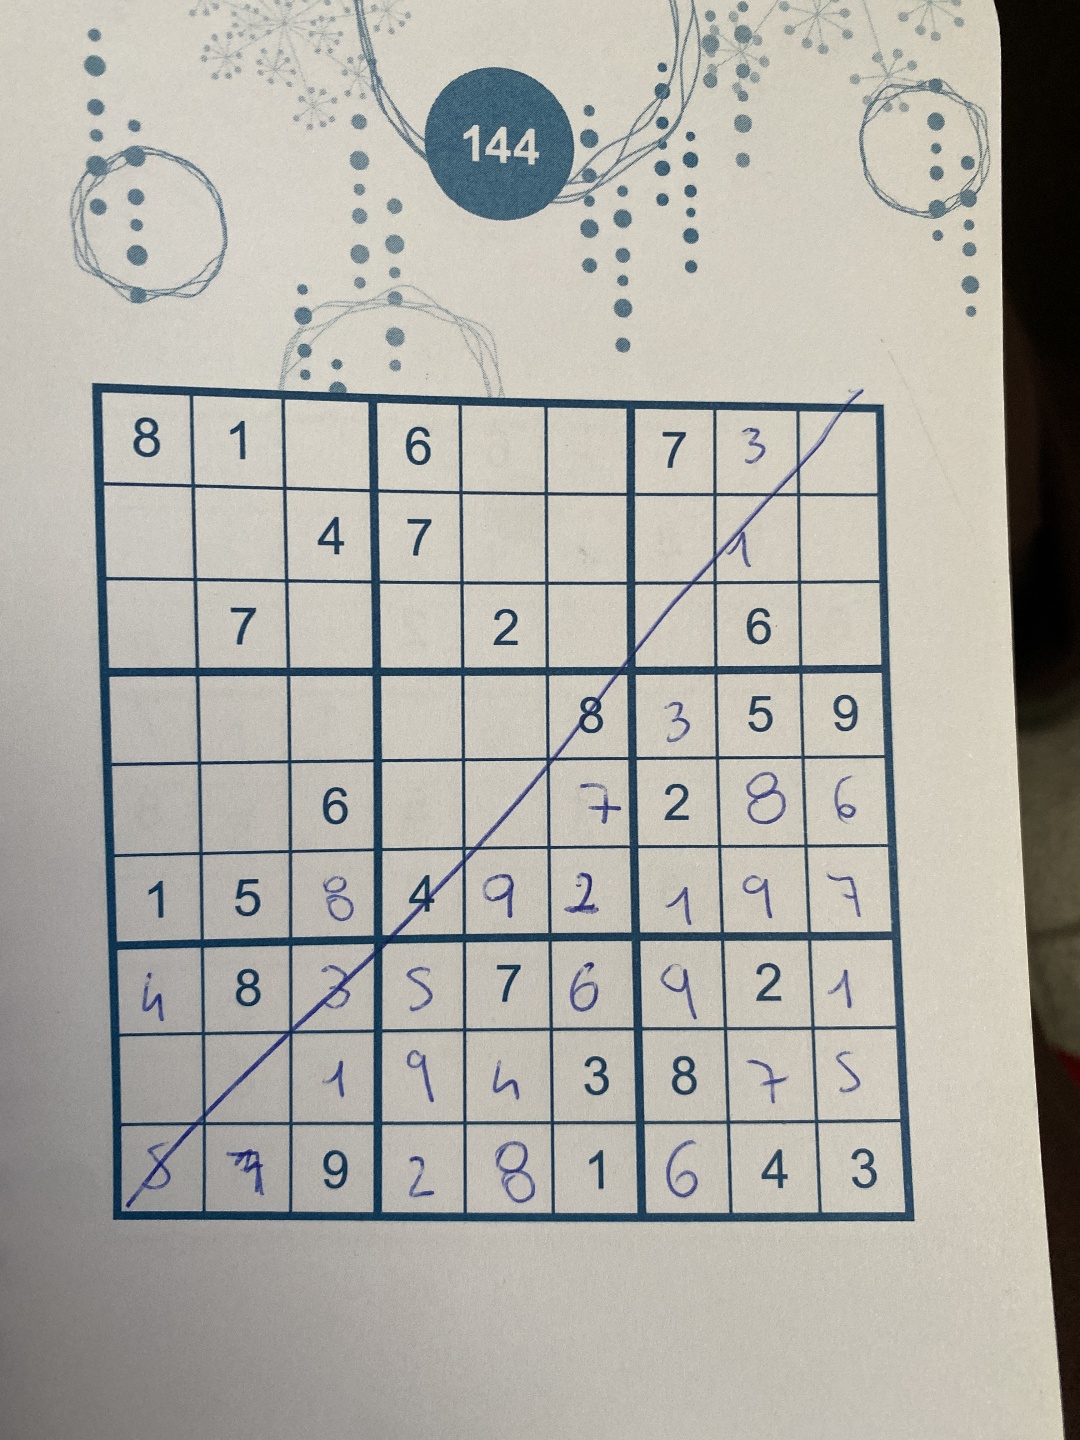 144
8 1 6 7 3
4 7 1
7 2 6
8 3 5 9
6 7 2 8 6
1 5 8 4 9 2 1 9 7
4 8 3 5 7 6 9 2 1
1 9 4 3 8 7 5
5 9 2 8 1 6 4 3